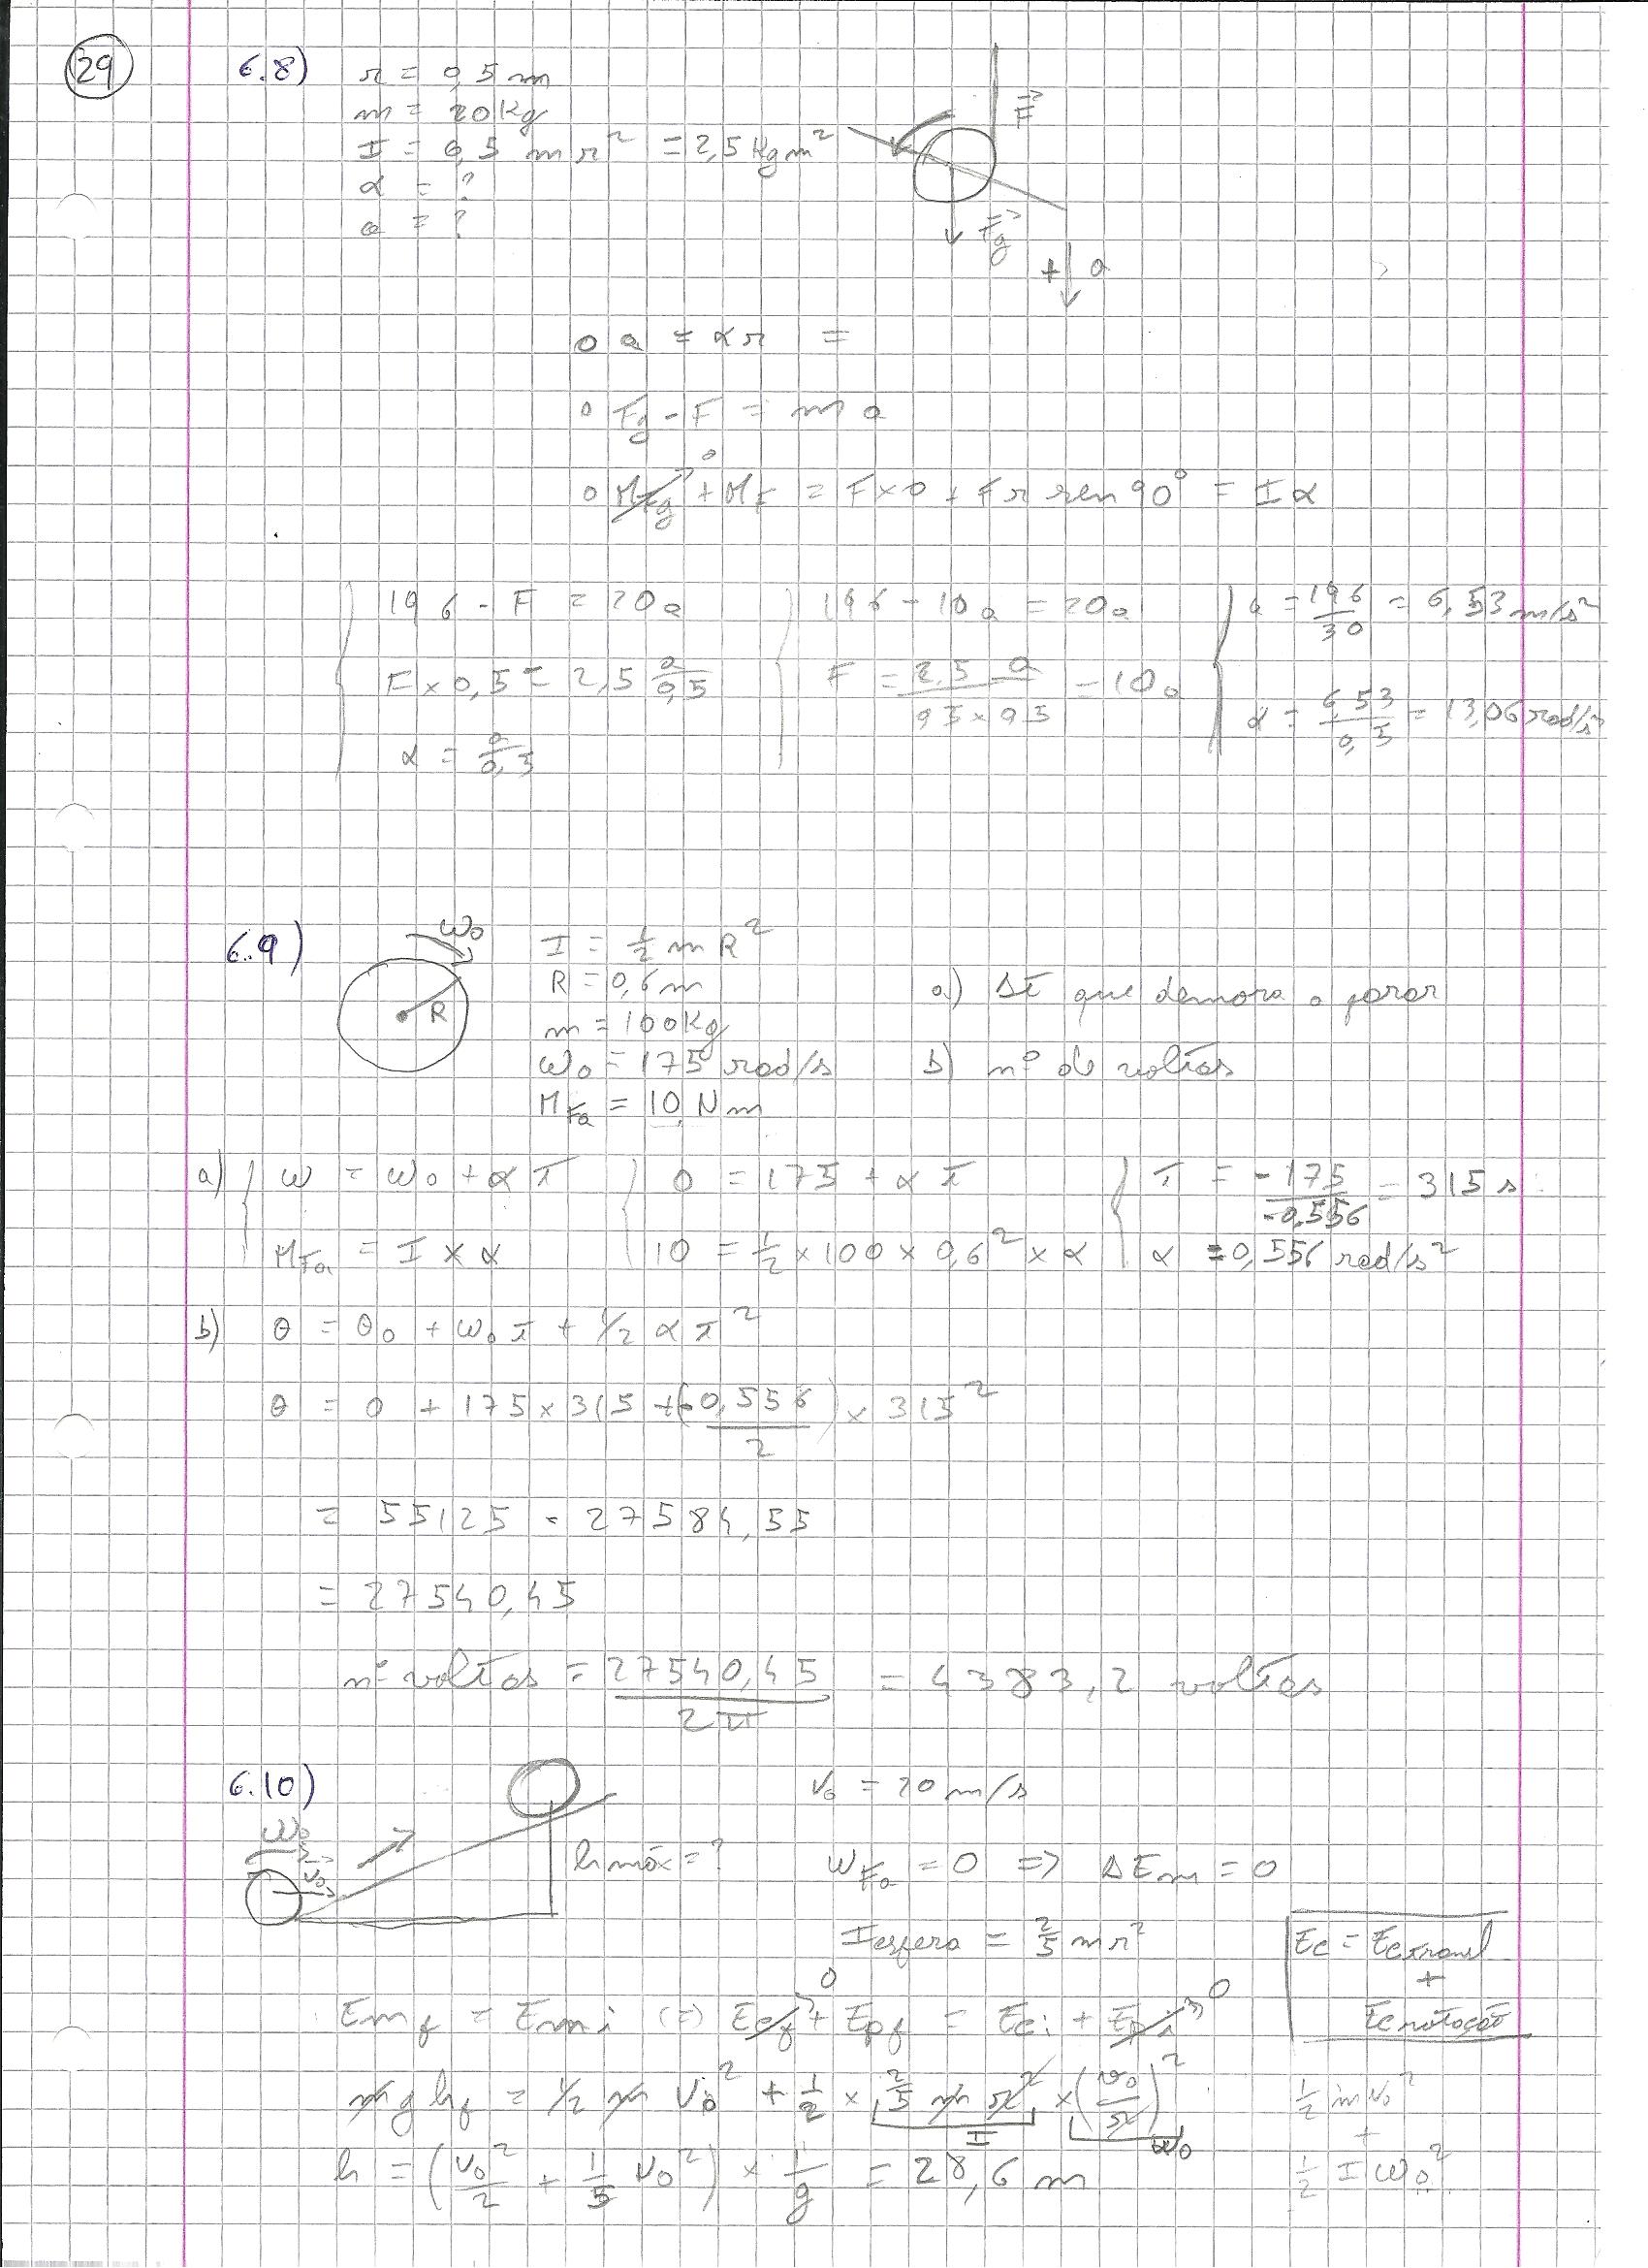 29
6.8) r = 0,5 m
m = 20 kg
I = 0,5 m r² = 2,5 Kg m²
α = ?
a = ?
F⃗
F⃗g
+ a
o a = α r =
o Fg - F = m a
o MFg + MF = F × 0 + F r sen 90° = I α
0
196 - F = 20a
F × 0,5 = 2,5 a/0,5
α = a/0,5
196 - 10a = 20a
F = 2,5 a / 0,5 × 0,5 = 10a
a = 196/30 = 6,53 m/s²
α = 6,53/0,5 = 13,06 rad/s²
6.9) ω₀
R
I = ½ m R²
R = 0,6 m
m = 100 Kg
ω₀ = 175 rad/s
MFa = 10 N m
a) Δt que demora a parar
b) nº de voltas
a) ω = ω₀ + α t
MFa = I × α
0 = 175 + α t
10 = ½ × 100 × 0,6² × α
t = -175/-0,556 = 315 s
α = 0,556 rad/s²
b) θ = θ₀ + ω₀ t + 1/2 α t²
θ = 0 + 175 × 315 + (-0,556/2) × 315²
= 55125 - 27584,55
= 27540,45
nº voltas = 27540,45/2π = 4383,2 voltas
6.10)
ω₀
v₀
h máx = ?
v₀ = 20 m/s
WFa = 0 => ΔEm = 0
Iesfera = 2/5 m r²
Ec = Ectransl
+
Ecrotação
Emf = Emi (=) Ecf + Epf = Eci + Epi
0 0
m g hf = 1/2 m v₀² + 1/2 × 2/5 m r² × (v₀/r)²
I ω₀
½ m v₀²
+
½ I ω₀²
h = (v₀²/2 + 1/5 v₀²) × 1/g = 28,6 m